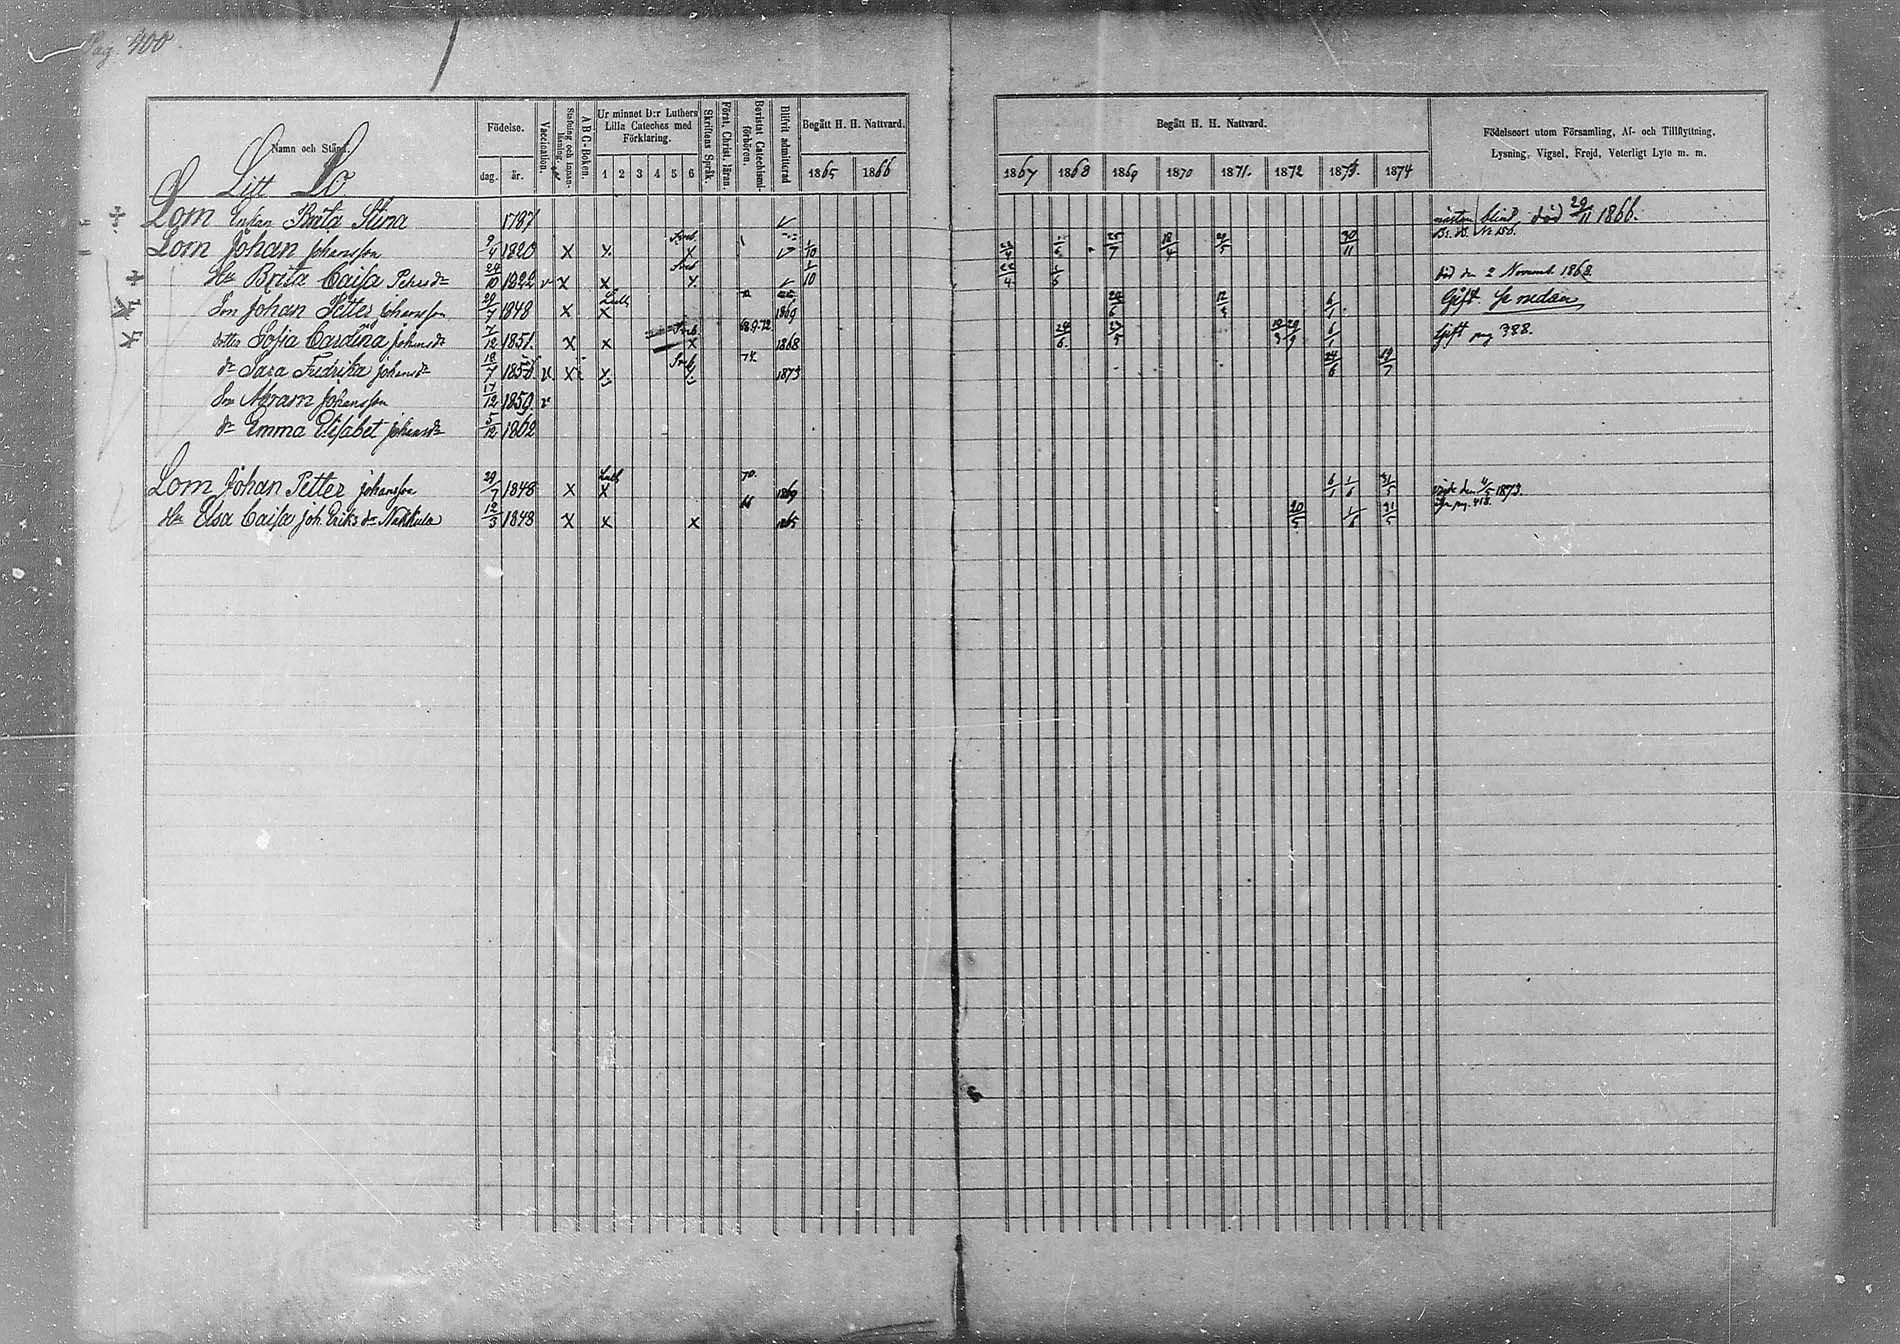 Pag. 400
Namn och Stånd.
Födelse.
dag.
år.
Vaccination.
Stafning och innanläsning.
A B C-Boken.
Ur minnet D:r Luthers Lilla Cateches med Förklaring.
1 2 3 4 5 6
Skriftens Språk.
Först. Christ. läran.
Bevistat Catechismiförhören.
Blifvit admitterad
Begått H. H. Nattvard.
1865 1866
Begått H. H. Nattvard.
1867 1868 1869 1870 1871. 1872 1873. 1874
Födelseort utom Församling, Af- och Tillflyttning,
Lysning, Vigsel, Frejd, Veterligt Lyte m. m.
Litt Lo
Lom Enkan Brita Stina 1787 nästan blind, död 29/11 1866.
Lom Johan Johansson 9/4 1820 X X X 1/10 25/7 18/4 30/11
Hu Brita Caisa Petersdr 24/10 1822 v X X 1/10 död den 2 Novemb. 1868
Son Johan Petter Johansson 29/7 1848 X X 1869 6/1 Gift. Se nedan
Dotter Sofia Carolina Johansdr 7/12 1851. X X X 68.9.72. 1868 6/1 Gift pag 388.
dr Sara Fredrika Johansdr X X 74. 1873 24/6 19/7
Son Abram Johansson 17/12 1859. v
dr Emma Elisabet Johansdr 5/12 1862
Lom Johan Petter Johansson 29/7 1848 X X 70. 1869 6/1 1/6 31/5 vigde den 4/5 1873.
Hu Elsa Caisa Joh. Eriksdr Nakkula 12/3 1843 X X X 66 1865 20/5 1/6 31/5 pag. 418.